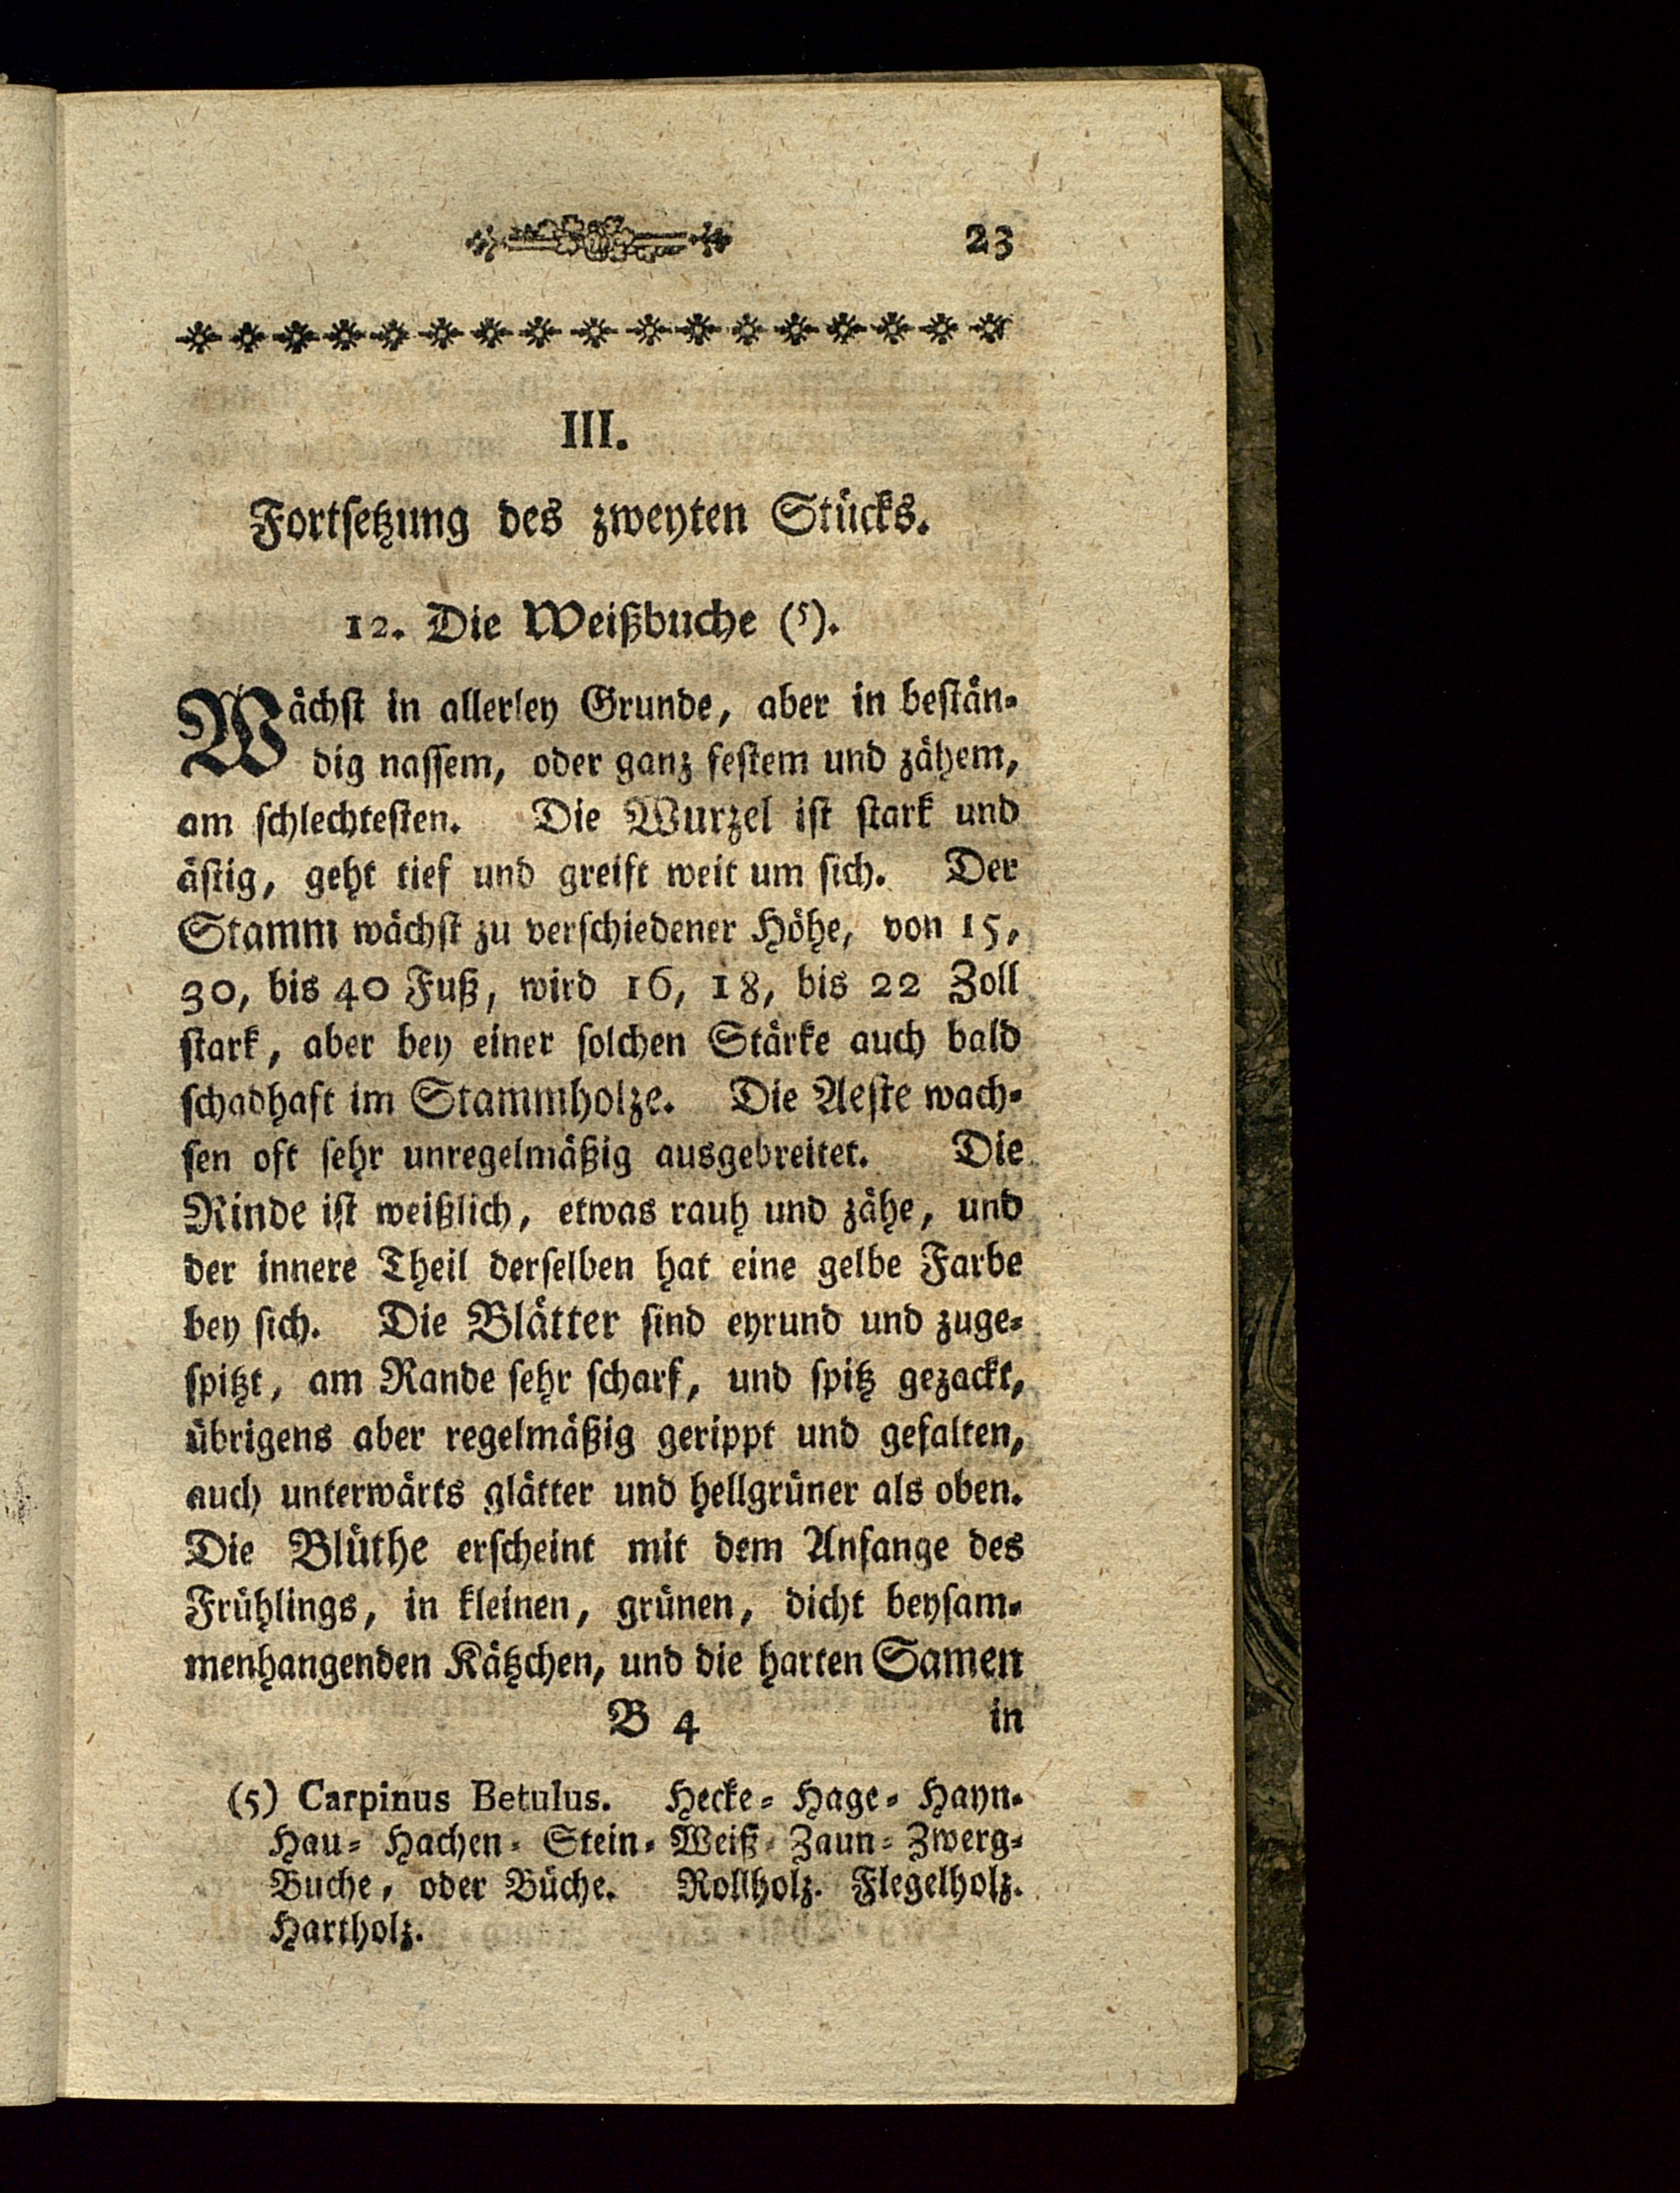 23
III.
Fortsetzung des zweyten Stücks.
12. Die Weißbuche (5).
Wächst in allerley Grunde, aber in bestän-
dig nassem, oder ganz festem und zähem,
am schlechtesten. Die Wurzel ist stark und
ästig, geht tief und greift weit um sich. Der
Stamm wächst zu verschiedener Höhe, von 15,
30, bis 40 Fuß, wird 16, 18, bis 22 Zoll
stark, aber bey einer solchen Stärke auch bald
schadhaft im Stammholze. Die Aeste wach-
sen oft sehr unregelmäßig ausgebreitet. Die
Rinde ist weißlich, etwas rauh und zähe, und
der innere Theil derselben hat eine gelbe Farbe
bey sich. Die Blätter sind eyrund und zuge-
spitzt, am Rande sehr scharf, und spitz gezackt,
übrigens aber regelmäßig gerippt und gefalten,
auch unterwärts glätter und hellgrüner als oben.
Die Blüthe erscheint mit dem Anfange des
Frühlings, in kleinen, grünen, dicht beysam-
menhangenden Kätzchen, und die harten Samen
B 4 in
(5) Carpinus Betulus. Hecke- Hage- Hayn-
Hau- Hachen- Stein- Weiß- Zaun- Zwerg-
Buche, oder Büche. Rollholz. Flegelholz.
Hartholz.